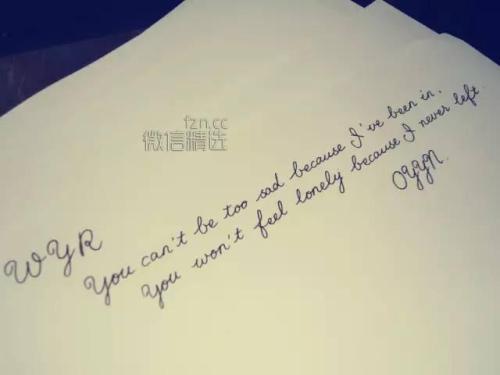 fzn.cc
微信精选
WYR
You can't be too sad because I've been in.
You won't feel lonely because I never left.
OYYN.